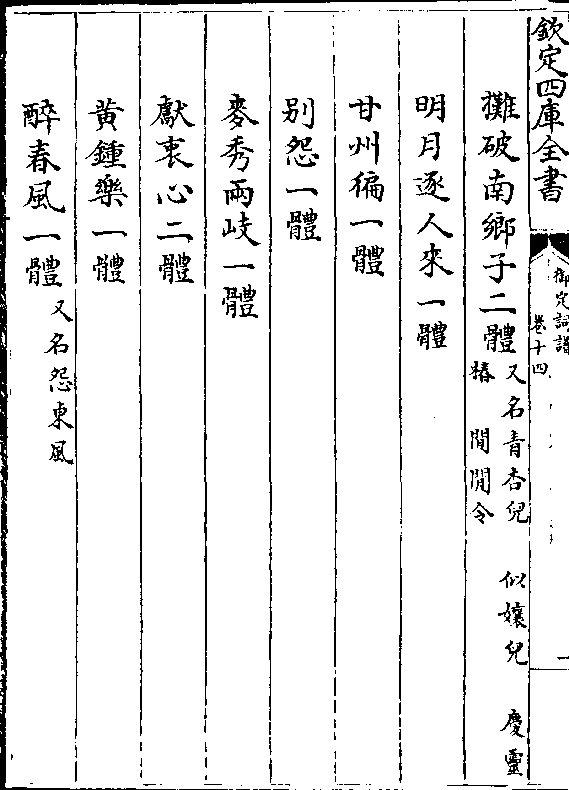 欽定四庫全書
御定詞譜
卷十四
一
攤破南鄉子二體
又名青杏兒　似孃兒　慶靈
椿　閒閒令
明月逐人來一體
甘州徧一體
别怨一體
麥秀兩歧一體
獻衷心二體
黃鍾樂一體
醉春風一體
又名怨東風